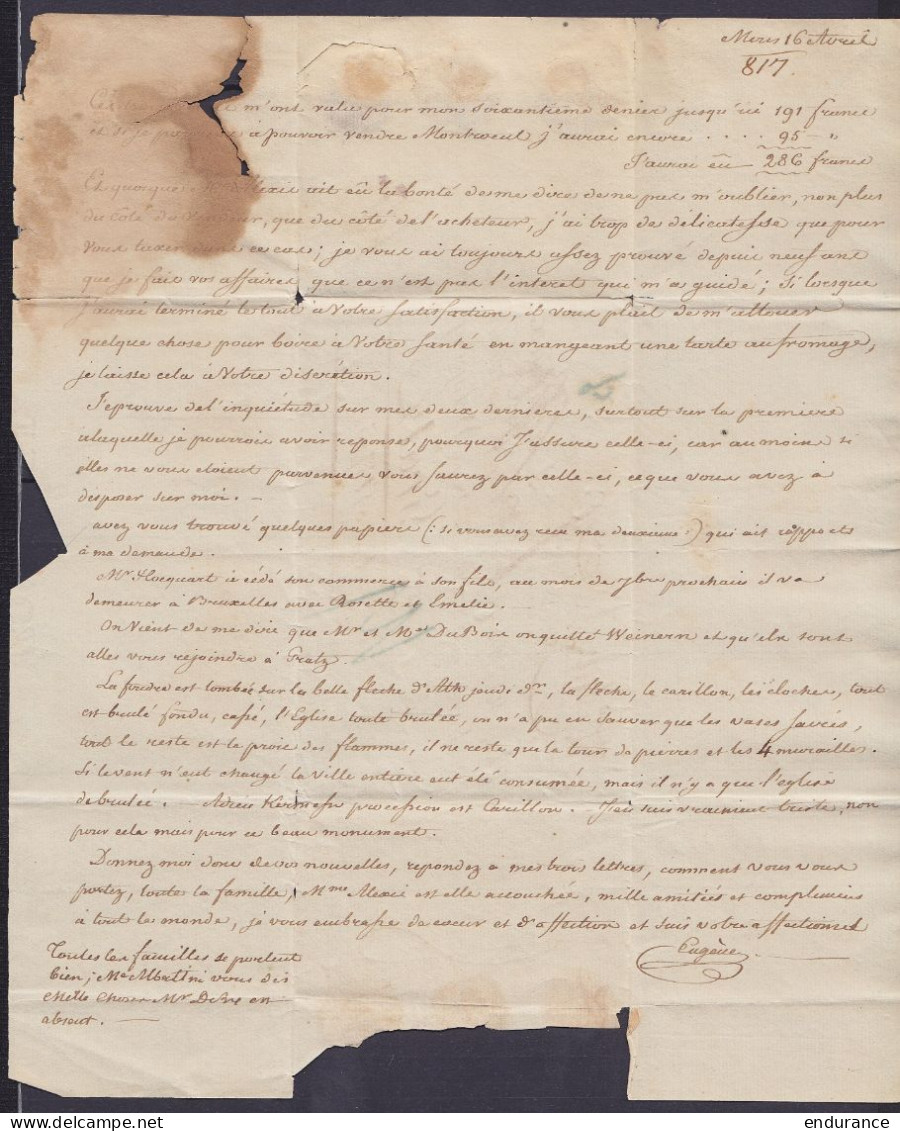 Mons 16 Avril
817.
m'ont valu pour mon soixantieme denier jusqu'ici 191 francs
à pouvoir vendre Montroeul j'aurai encore . . . . 95 — "
J'aurai eû — 286 francs
Et quoique M. Alexis ait eû la bonté de me dire de ne pas m'oublier, non plus
du côté du vendeur, que du côté de l'acheteur, j'ai trop de délicatesse que pour
vous taxer dans ce cas; je vous ai toujours assez prouvé depuis neuf ans
que je fais vos affaires que ce n'est pas l'interet qui m'a guidé; Si lorsque
j'aurai terminé le tout à Votre Satisfaction, il vous plait de m'allouer
quelque chose pour boire à Votre Santé en mangeant une tarte au fromage,
je laisse cela à Votre discrétion.
J'eprouve de l'inquiétude sur mes deux dernieres, surtout sur la premiere
alaquelle je pourrois avoir reponse, pourquoi J'assure celle-ci, car au moins si
elles ne vous etoient parvenues vous saurez par celle-ci, ce que vous avez à
disposer sur moi. —
avez vous trouvé quelques papiers (: si vous avez recu ma deuxieme :) qui ait rapport
à ma demande.
Mr. Hocquart a cédé son commerce à son fils, au mois de 7bre prochain il va
demeurer à Bruxelles avec Rosette et Emelie.
On Vient de me dire que Mr et Me DuBois on quitté Weinern et qu'ils sont
allés vous rejoindre à Gratz.
La foudre est tombée sur la belle fleche d'Ath jeudi dr, la fleche, le carillon, les cloches, tout
est brulé fondu, cassé, l'Eglise toute brulée, on n'a pu en sauver que les vases sacrés,
tout le reste est la proie des flammes, il ne reste que la tour de pierres et les 4 murailles.
Si le vent n'eut changé la Ville entiere eut été consumée, mais il n'y a que l'eglise
de brulée. Adieu Kermesse procession est Carillon. J'en suis vraiment triste, non
pour cela mais pour ce beau monument.
Donnez moi donc de vos nouvelles, repondez à mes trois lettres, comment vous vous
portez, toute la famille, Mme Alexis est elle accouchée, mille amitiés et complimens
à tout le monde, je vous embrasse de coeur et d'affection et suis votre affectionné
Eugène
Toutes les familles se portent
bien; Me Martini vous dis
Mille Choses Mr en
absent. —
endurance